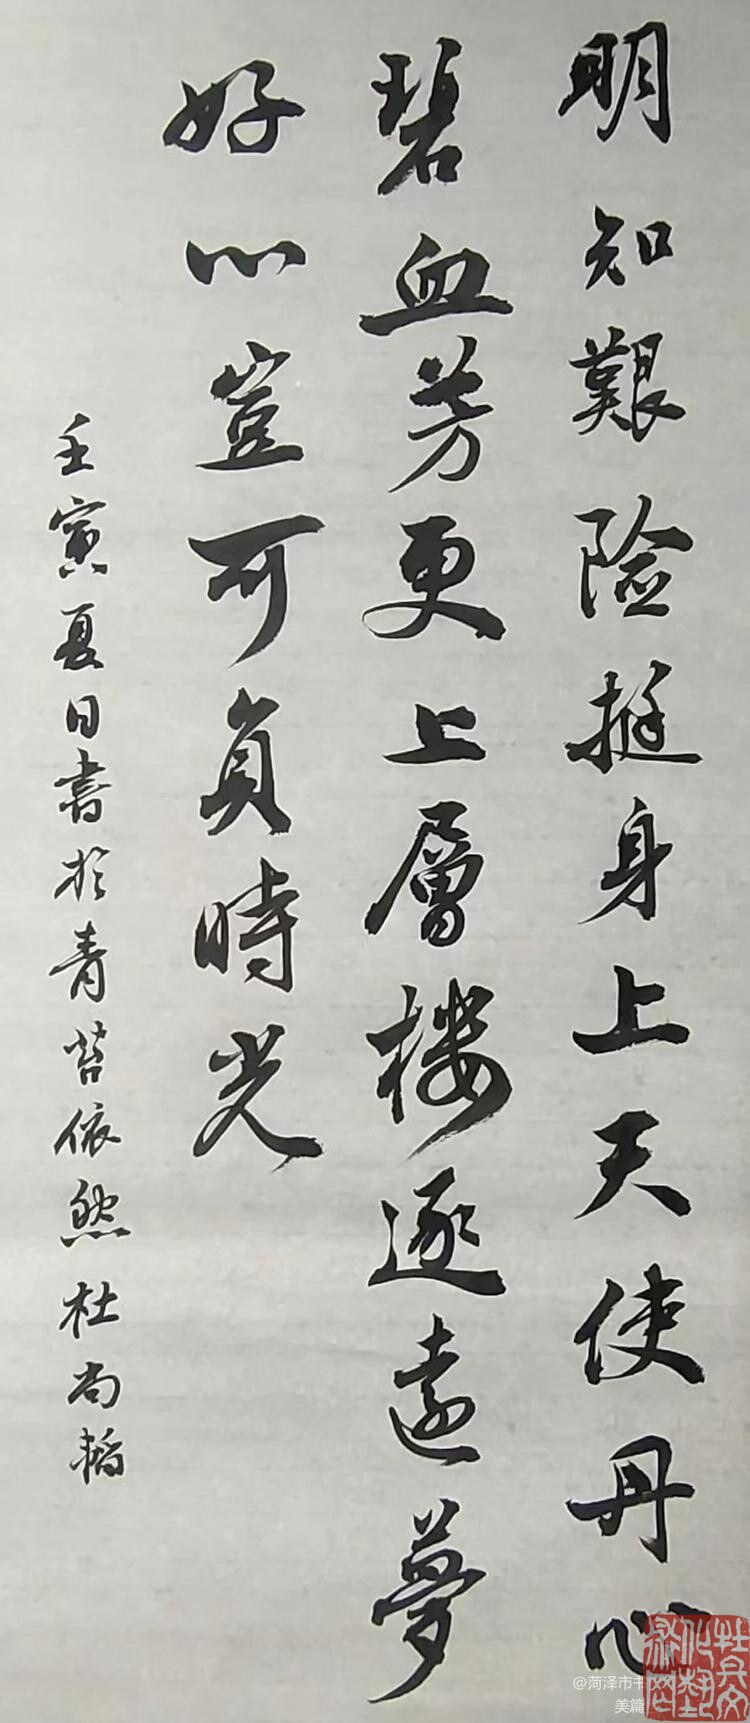 明知艱險挺身上天使丹心
碧血芳更上層樓逐遠夢
好心豈可負時光
壬寅夏日書於青苔依然杜尚韜
@菏泽市书
美篇